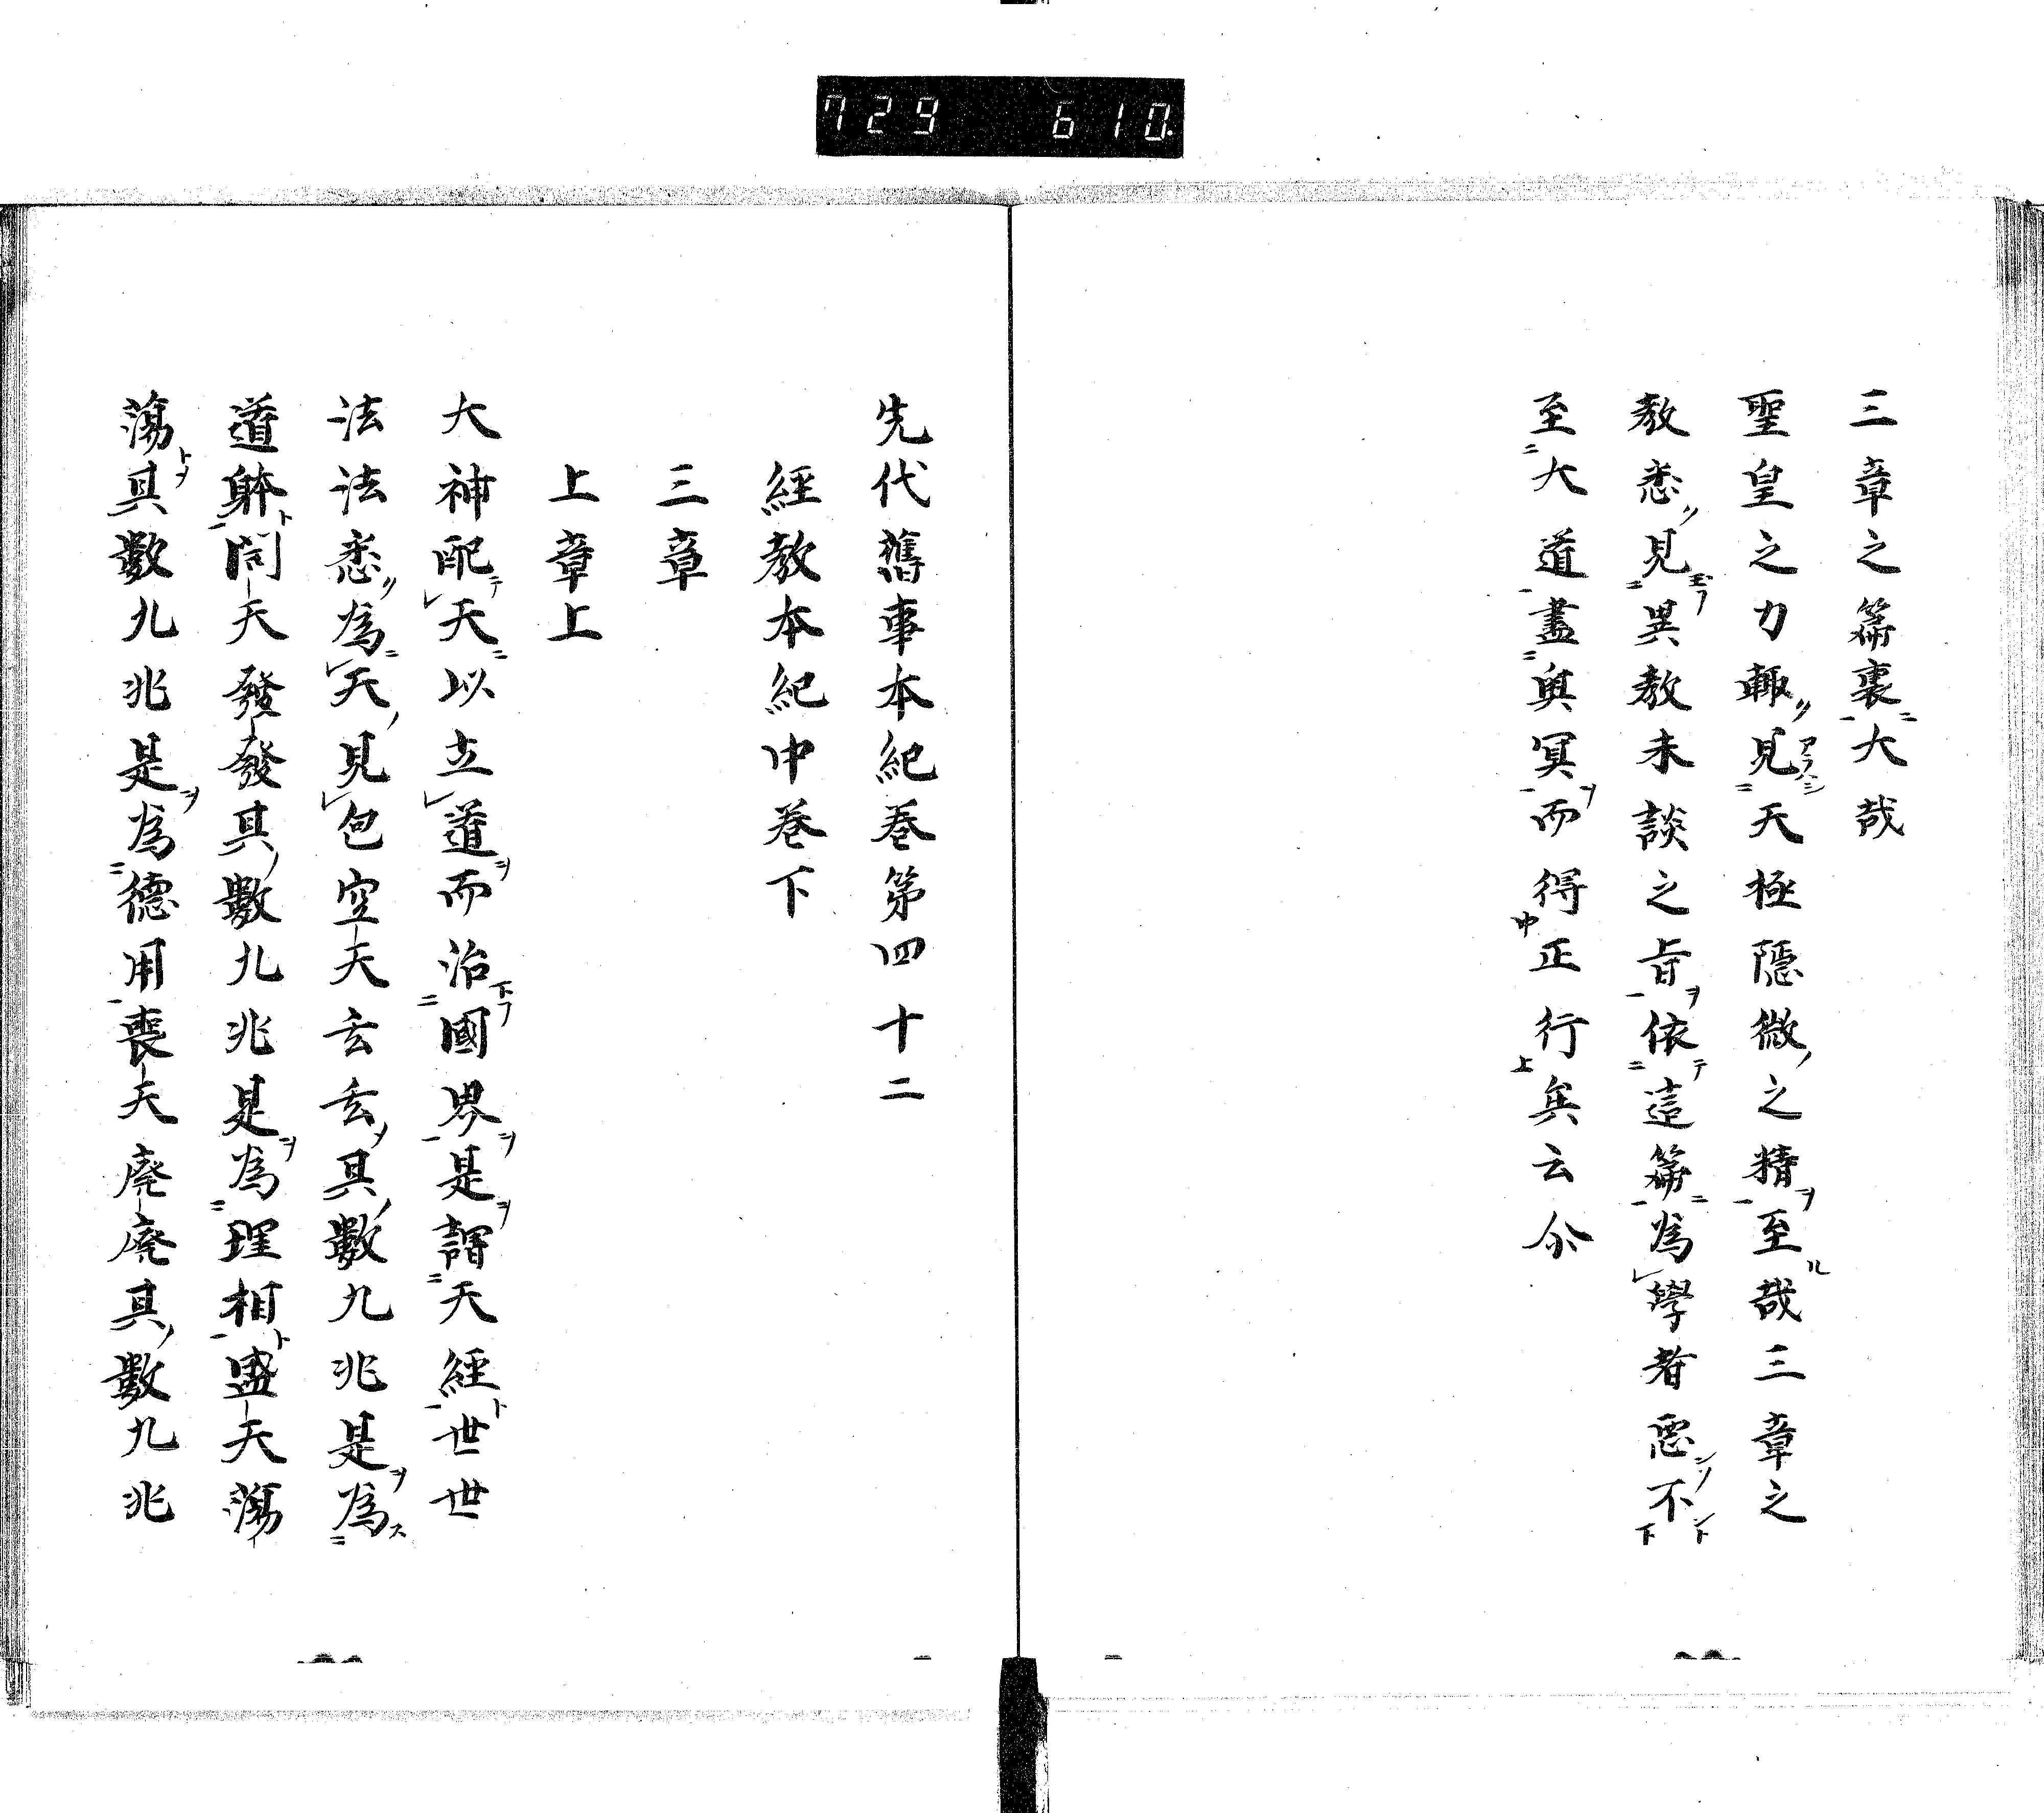 729 610
三章之篇裏大哉
聖皇之力輙見天極隱微之精至哉三章之
教悉見異教未談之旨依這篇為學者惡不
至大道盡奥冥而得正行矣云尒
先代舊事本紀巻第四十二
經教本紀中巻下
三章
上章上
大神配天以立道而治國界是謂天經世世
法法悉為天見包空天玄玄其數九兆是為
道躰同天發發其數九兆是為理相盛天蕩
蕩其數九兆是為德用喪天廃廃其數九兆